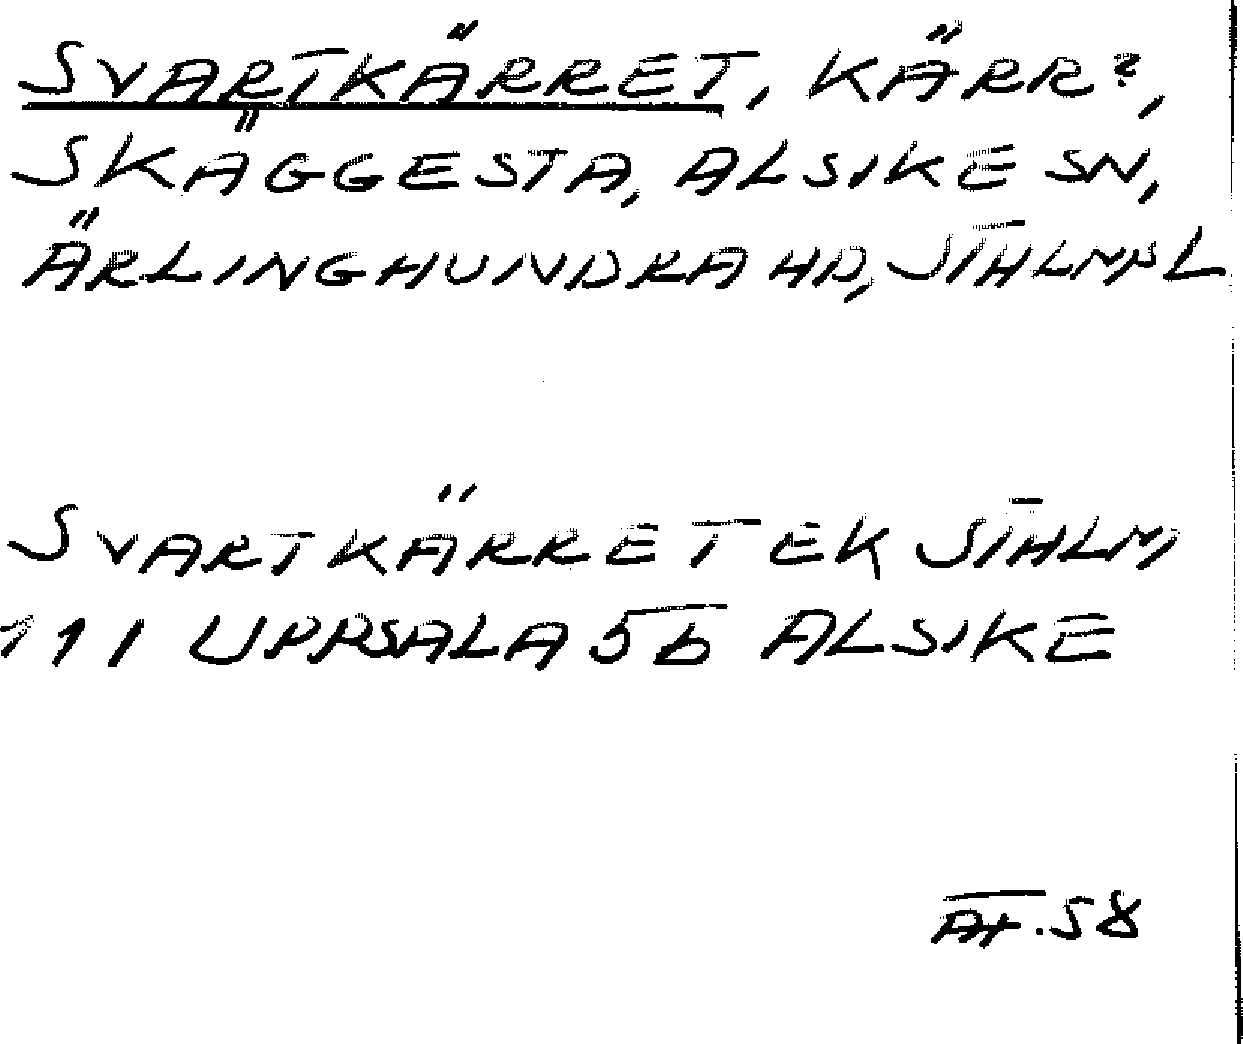 SVARTKÄRRET, KÄRR?,
SKÄGGESTA, ALSIKE SN,
ÄRLINGHUNDRA HD, STHLMS L
SVARTKÄRRET EK STHLM
111 UPPSALA 5b ALSIKE
AT.58